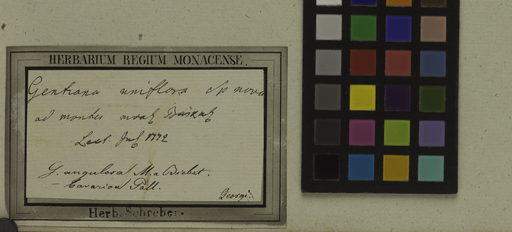 HERBARIUM REGIUM MONACENSE.
Gentiana uniflora Sp nova
ad montes
G. angulosa M. a Bieberst.
Pall.
Georgi.
Herb. Schreber.